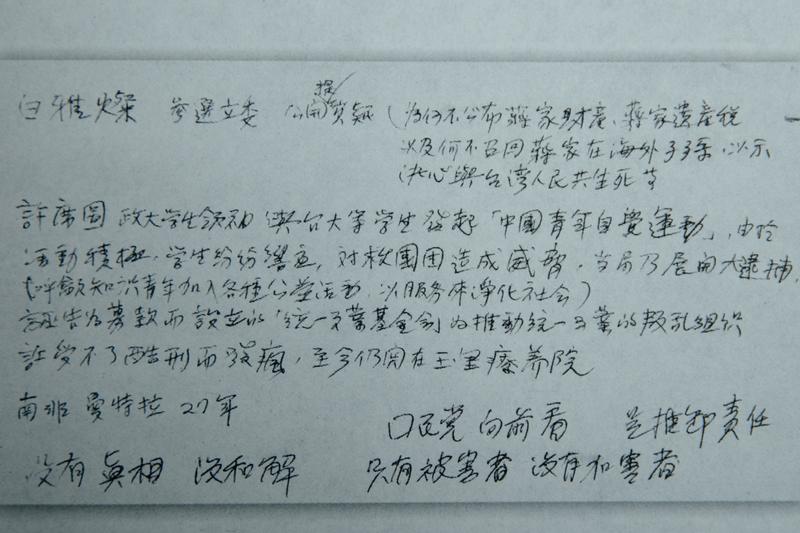 白雅燦 參選立委 公開提質疑（為何不公布蔣家財產、蔣家遺產稅
以及何不召回蔣家在海外子孫，以示
決心與台灣人民共生死等
許席圖 政大学生領袖 與台大等学生發起「中國青年自覺運動」，由於
活動積極，学生紛紛響应，对救國团造成威脅，当局乃展開大逮捕，
（呼籲知识青年加入各種公益活動，以服务来淨化社会）
誣告为募款而設立的「統一事業基金会」为推動統一事業的叛乱組织
許受不了酷刑而發瘋，至今仍関在玉里療养院
南非 曼特拉 27年
口瓦党 向前看 是推卸責任
没有真相 没和解 只有被害者 沒有加害者